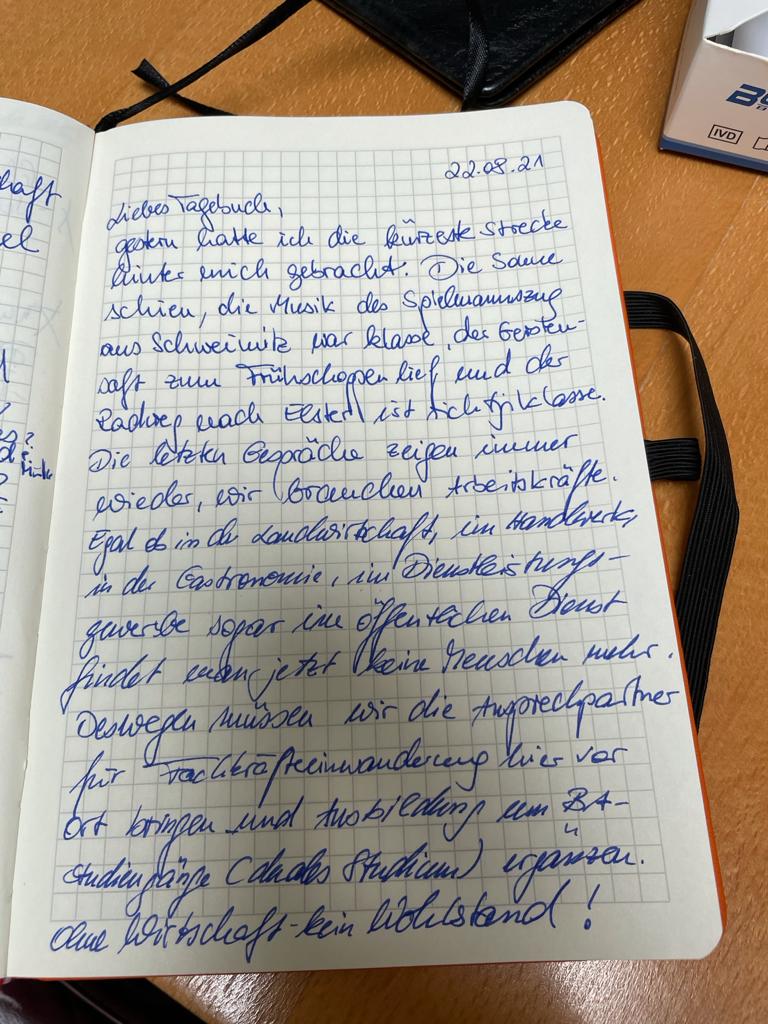 22.08.21
Liebes Tagebuch,
gestern hatte ich die kürzeste Strecke
hinter mich gebracht. Die Sonne
schien, die Musik des Spielmannszug
aus Schweinitz war klasse, der Gersten-
saft zum Frühschoppen lief und der
Radweg nach Elster ist richtig klasse.
Die letzten Gespräche zeigen immer
wieder, wir brauchen Arbeitskräfte.
Egal ob in der Landwirtschaft, im Handwerk,
in der Gastronomie, im Dienstleistungs-
gewerbe sogar im öffentlichen Dienst
findet man jetzt keine Menschen mehr.
Deswegen müssen wir die Ansprechpartner
für Fachkräfteeinwanderung hier vor
Ort bringen und Ausbildung um BA-
studiengänge (duales Studium) ergänzen.
Ohne Wirtschaft - kein Wohlstand!
haft
el
IVD